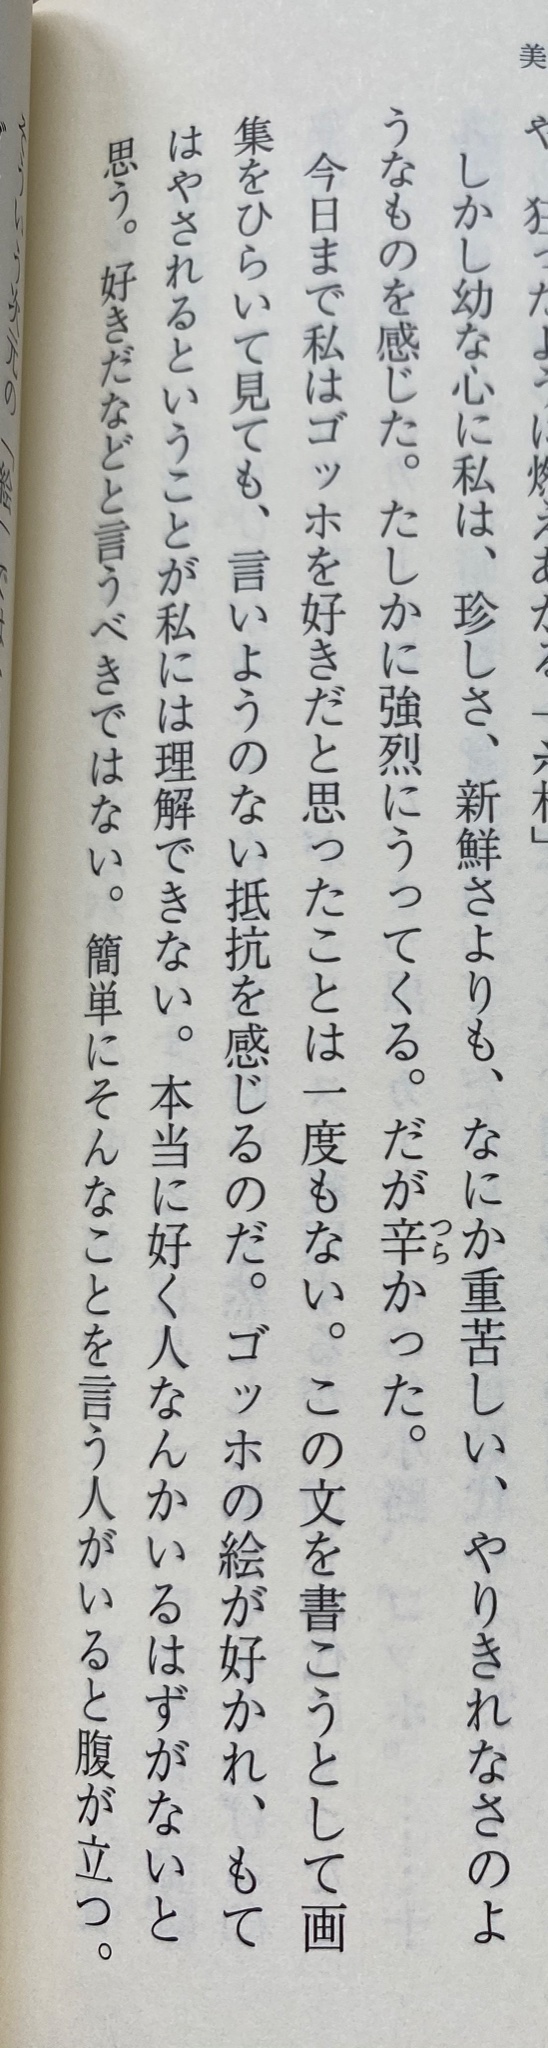 美
しかし幼な心に私は、珍しさ、新鮮さよりも、なにか重苦しい、やりきれなさのよ
うなものを感じた。たしかに強烈にうってくる。だが辛かった。
つら
今日まで私はゴッホを好きだと思ったことは一度もない。この文を書こうとして画
集をひらいて見ても、言いようのない抵抗を感じるのだ。ゴッホの絵が好かれ、もて
はやされるということが私には理解できない。本当に好く人なんかいるはずがないと
思う。好きだなどと言うべきではない。簡単にそんなことを言う人がいると腹が立つ。